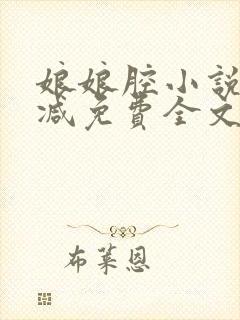 娘娘腔小說
減免費全文
布萊恩